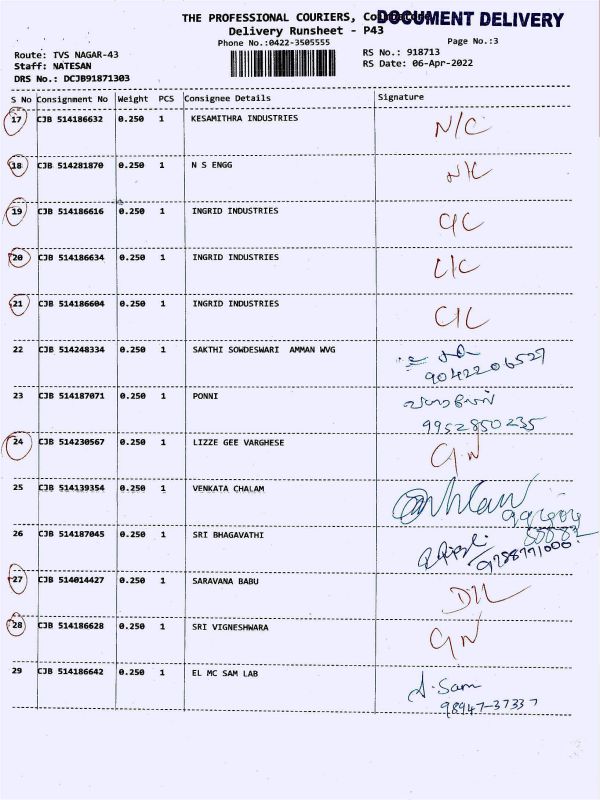 THE PROFESSIONAL COURIERS,
DOCUMENT DELIVERY
Delivery Runsheet - P43
Phone No.:0422-3505555
Page No.:3
Route: TVS NAGAR-43
RS No.: 918713
Staff: NATESAN
RS Date: 06-Apr-2022
DRS No.: DCJB91871303
S No Consignment No Weight PCS Consignee Details Signature
17 CJB 514186632 0.250 1 KESAMITHRA INDUSTRIES N/C
18 CJB 514281870 0.250 1 N S ENGG N/C
19 CJB 514186616 0.250 1 INGRID INDUSTRIES
20 CJB 514186634 0.250 1 INGRID INDUSTRIES
21 CJB 514186604 0.250 1 INGRID INDUSTRIES
22 CJB 514248334 0.250 1 SAKTHI SOWDESWARI AMMAN WVG
9042206527
23 CJB 514187071 0.250 1 PONNI
9952850235
24 CJB 514230567 0.250 1 LIZZE GEE VARGHESE
25 CJB 514139354 0.250 1 VENKATA CHALAM
26 CJB 514187045 0.250 1 SRI BHAGAVATHI
27 CJB 514014427 0.250 1 SARAVANA BABU
28 CJB 514186628 0.250 1 SRI VIGNESHWARA
29 CJB 514186642 0.250 1 EL MC SAM LAB A. Sam
98947-37337